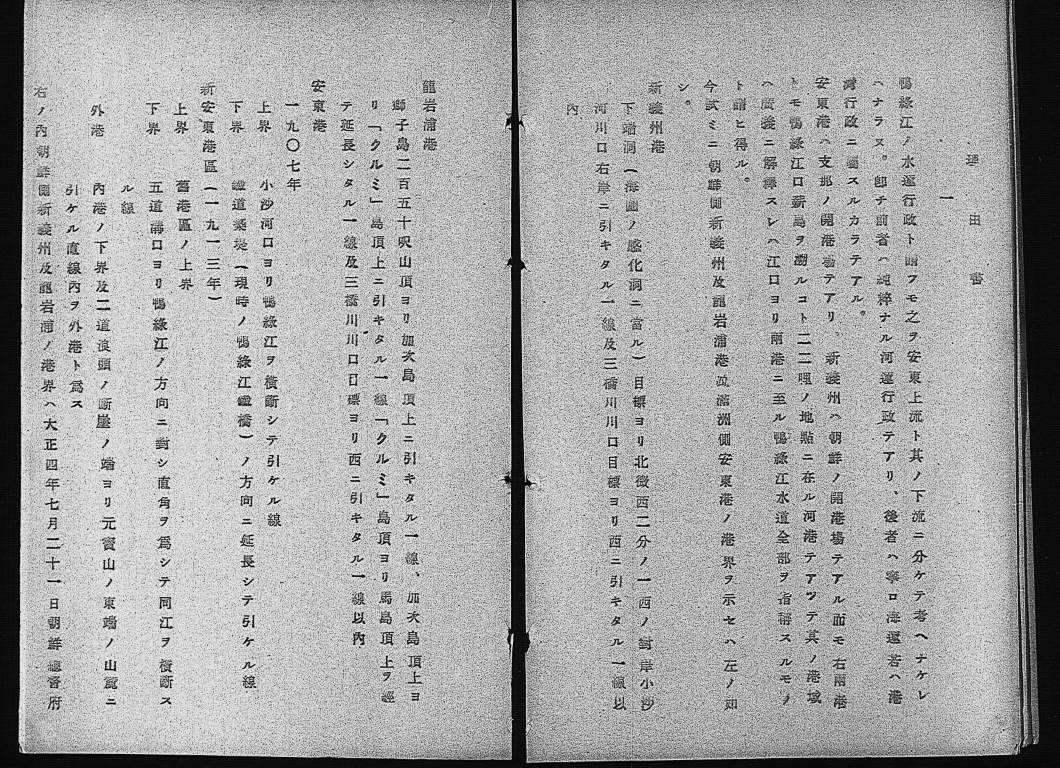 理由書
一
鴨綠江ノ水運行政ト謂フモ之ヲ安東上流ト其ノ下流ニ分ケテ考ヘナケレ
ハナラヌ。卽チ前者ハ純粹ナル河運行政テアリ、後者ハ寧ロ海運若ハ港
灣行政ニ屬スルカラテアル。
安東港ハ支那ノ開港場テアリ。新義州ハ朝鮮ノ開港場テアル而モ右兩港
トモ鴨綠江口ヲ溯ルコト二二哩ノ地點ニ在ル河港テアツテ其ノ港域
ハ廣義ニ解釋スレハ江口ヨリ兩港ニ至ル鴨綠江水道全部ヲ指稱スルモノ
ト謂ヒ得ル。
今試ミニ朝鮮側新義州及龍岩浦港及滿洲側安東港ノ港界ヲ示セハ左ノ如
シ。
新義州港
下端洞(海圖ノ感化洞ニ當ル)目標ヨリ北微西二分ノ一西ノ對岸小沙
河川口右岸ニ引キタル一線及三橋川川口目標ヨリ西ニ引キタル一線以
內
龍岩浦港
獅子島二百五十呎山頂ヨリ加次島頂上ニ引キタル一線、加次島頂上ヨ
リ「クルミ」島頂上ニ引キタル一線「クルミ」島頂ヨリ馬島頂上ヲ經
テ延長シタル一線及三橋川川口目標ヨリ西ニ引キタル一線以內
安東港
一九〇七年
上界 小沙河口ヨリ鴨綠江ヲ橫斷シテ引ケル線
下界 鐵道築堤(現時ノ鴨綠江鐵橋)ノ方向ニ延長シテ引ケル線
新安東港區(一九一三年)
上界 舊港區ノ上界
下界 五道溝口ヨリ鴨綠江ノ方向ニ對シ直角ヲ爲シテ同江ヲ橫斷ス
ル線
外港 內港ノ下界及二道浪頭ノ斷崖ノ端ヨリ元寶山ノ東端ノ山麓ニ
引ケル直線內ヲ外港ト爲ス
右ノ內朝鮮側新義州及龍岩浦ノ港界ハ大正四年七月二十一日朝鮮總督府